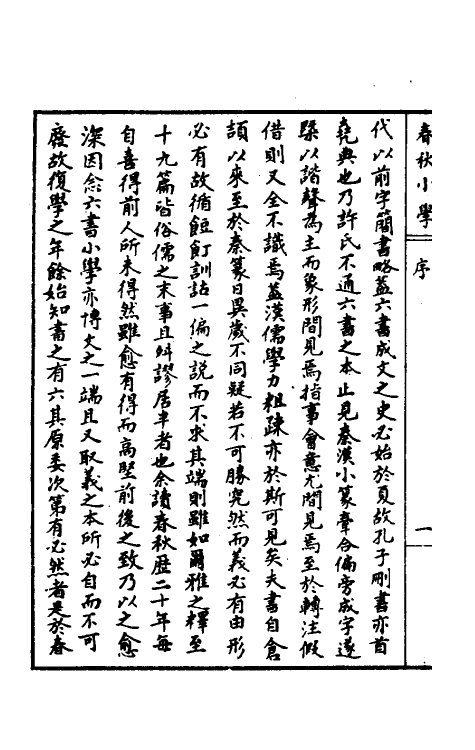 春秋小學 序 一
代以前字簡書略蓋六書成文之史必始於夏故孔子刪書亦首
堯典也乃許氏不通六書之本止見秦漢小篆聲合偏旁成字遂
槩以諧聲為主而象形間見焉指事會意尤間見焉至於轉注假
借則又全不識焉蓋漢儒學力粗疎亦於斯可見矣夫書自倉
頡以來至於秦篆日異歲不同疑若不可勝究然而義必有由形
必有故循飽飣訓詁一偏之說而不求其端則雖如爾雅之釋至
十九篇皆俗儒之末事且舛謬居半者也余讀春秋歷二十年每
自喜得前人所未得然雖愈有得而高堅前後之致乃以之愈
深因念六書小學亦博文之一端且又取義之本所必自而不可
廢故復學之年餘始知書之有六其原委次第有必然者是於春